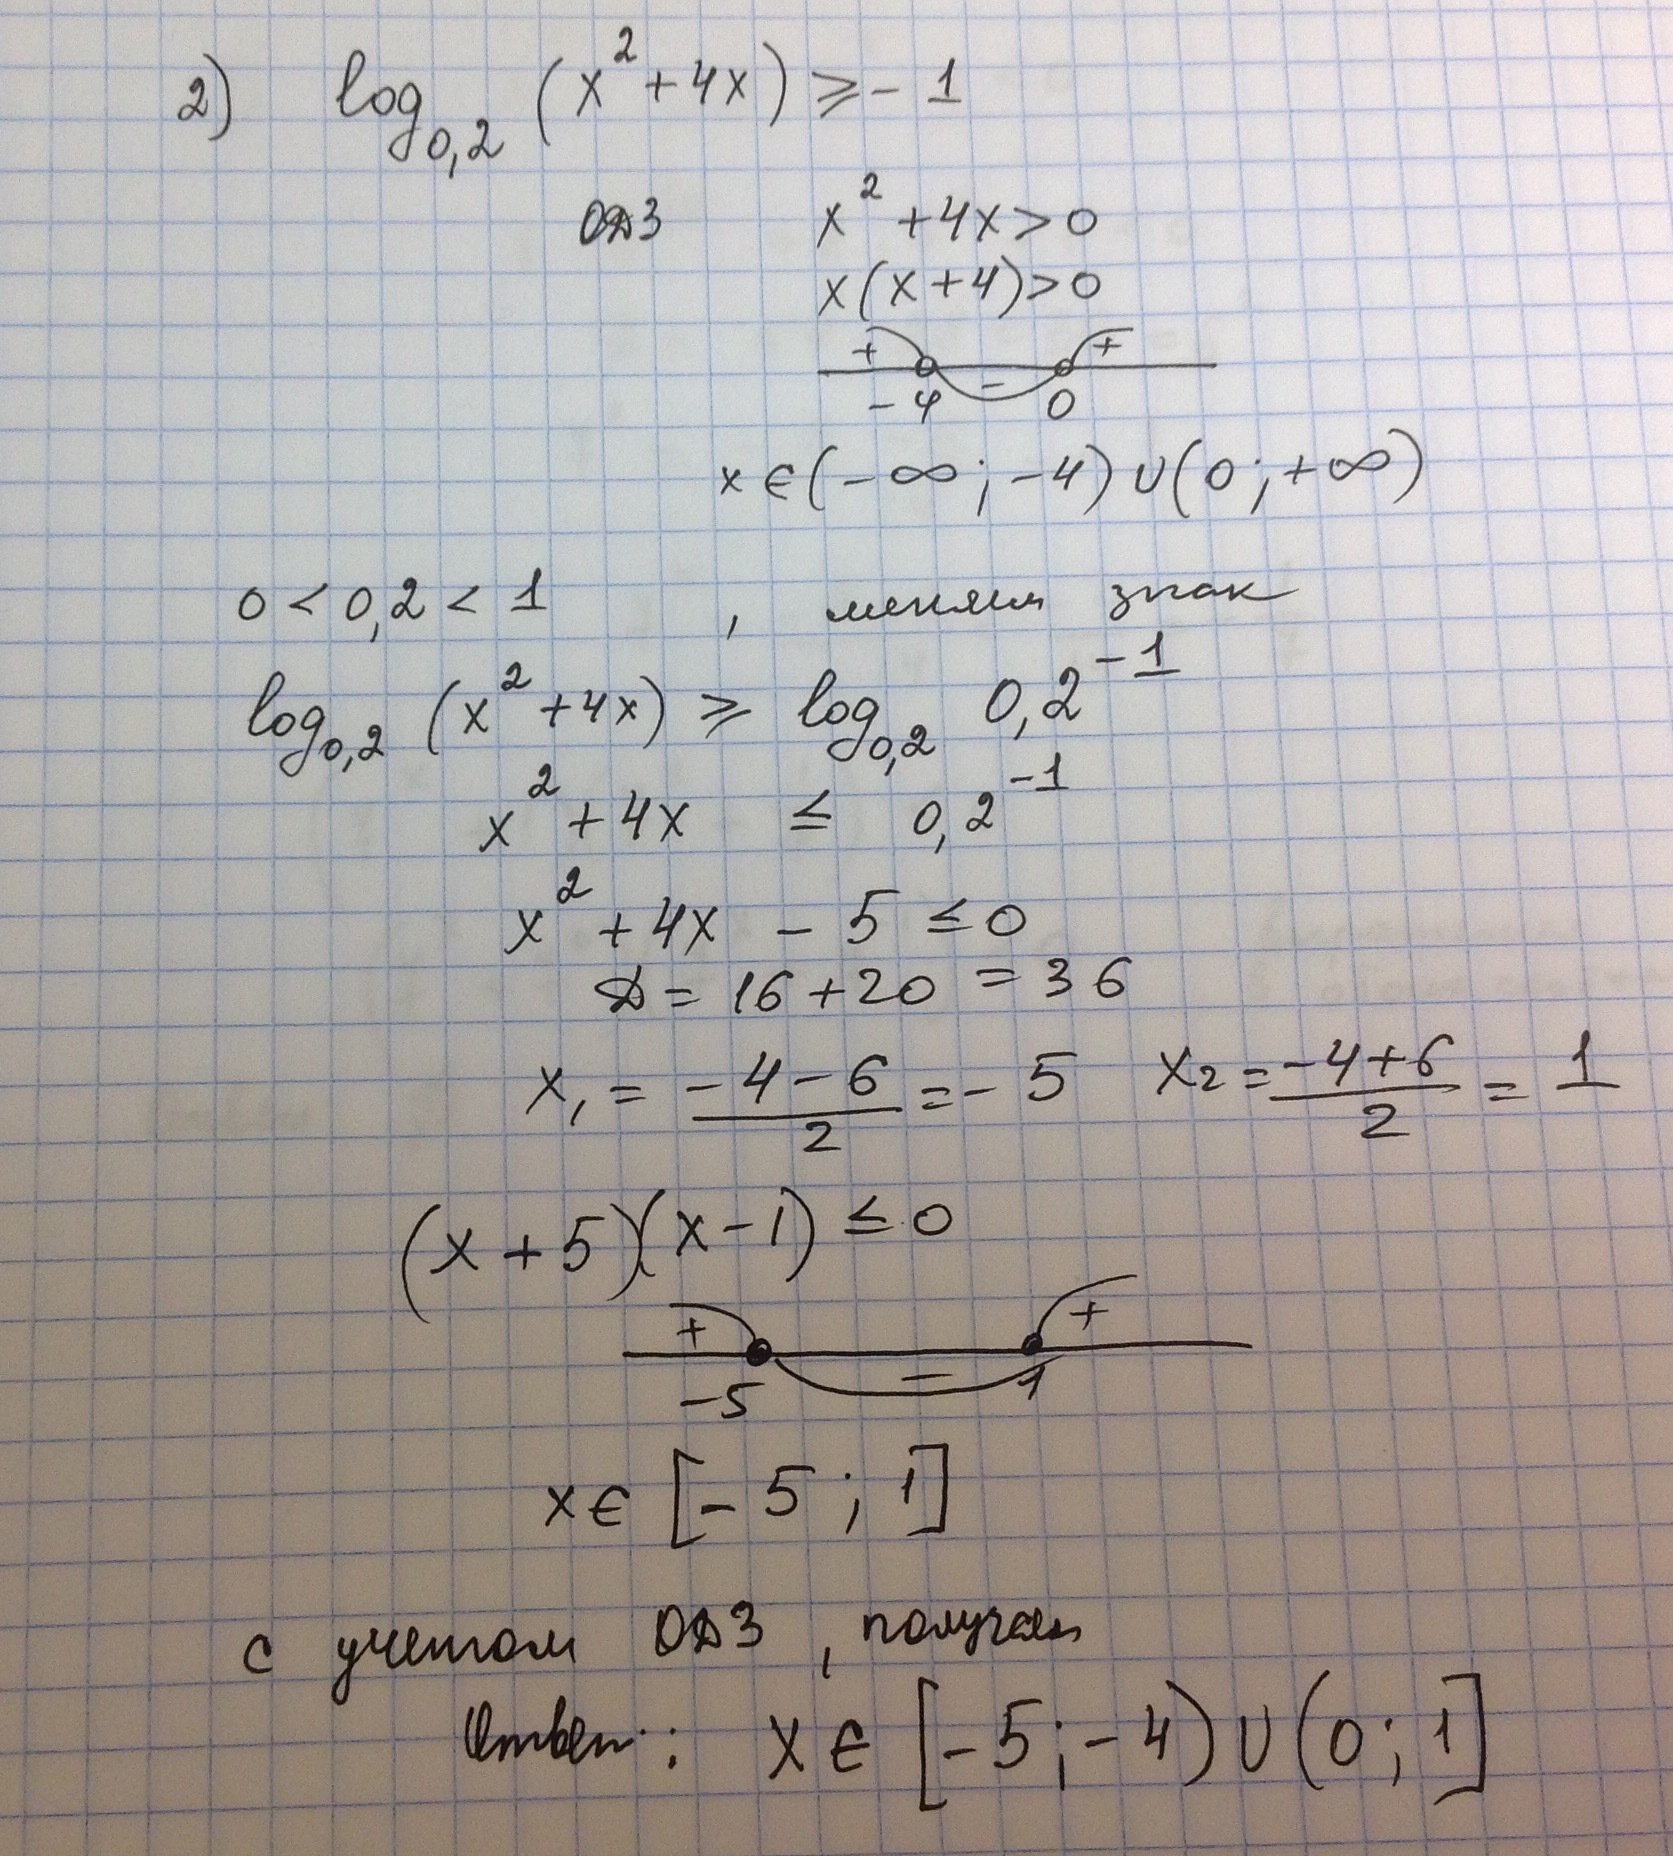 2) log₀,₂ (x² + 4x) ≥ - 1
ОДЗ x² + 4x > 0
x(x + 4) > 0
+ - +
- 4 0
x ∈ (- ∞ ; - 4) ∪ (0 ; + ∞)
0 < 0,2 < 1 , меняем знак
log₀,₂ (x² + 4x) ≥ log₀,₂ 0,2⁻¹
x² + 4x ≤ 0,2⁻¹
x² + 4x - 5 ≤ 0
Д = 16 + 20 = 36
x₁ = (-4 - 6)/2 = - 5 x₂ = (-4 + 6)/2 = 1
(x + 5)(x - 1) ≤ 0
+ - +
-5 1
x ∈ [- 5 ; 1]
с учетом ОДЗ , получаем
Ответ: x ∈ [- 5 ; - 4) ∪ (0 ; 1]